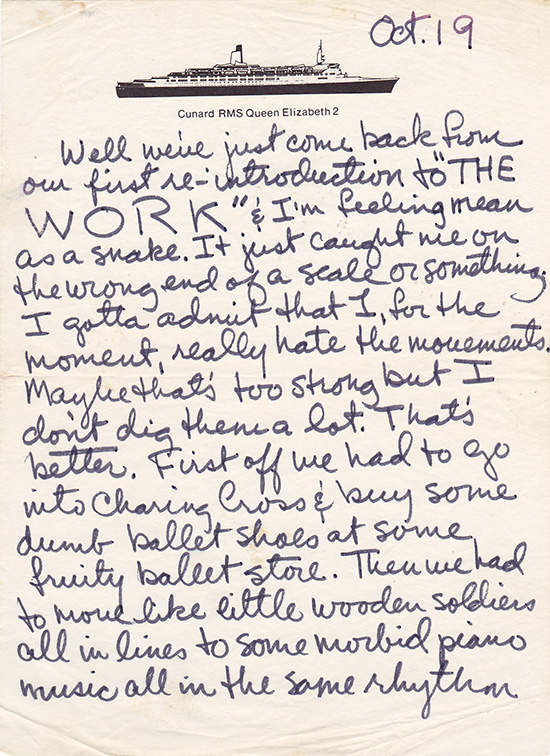 Oct. 19
Cunard RMS Queen Elizabeth 2
Well we've just come back from
our first re-introduction to "THE
WORK" & I'm feeling mean
as a snake. It just caught me on
the wrong end of a scale or something.
I gotta admit that I, for the
moment, really hate the movements.
Maybe that's too strong but I
don't dig them a lot. That's
better. First off we had to go
into Charing Cross & buy some
dumb ballet shoes at some
fruity ballet store. Then we had
to move like little wooden soldiers
all in lines to some morbid piano
music all in the same rhythm